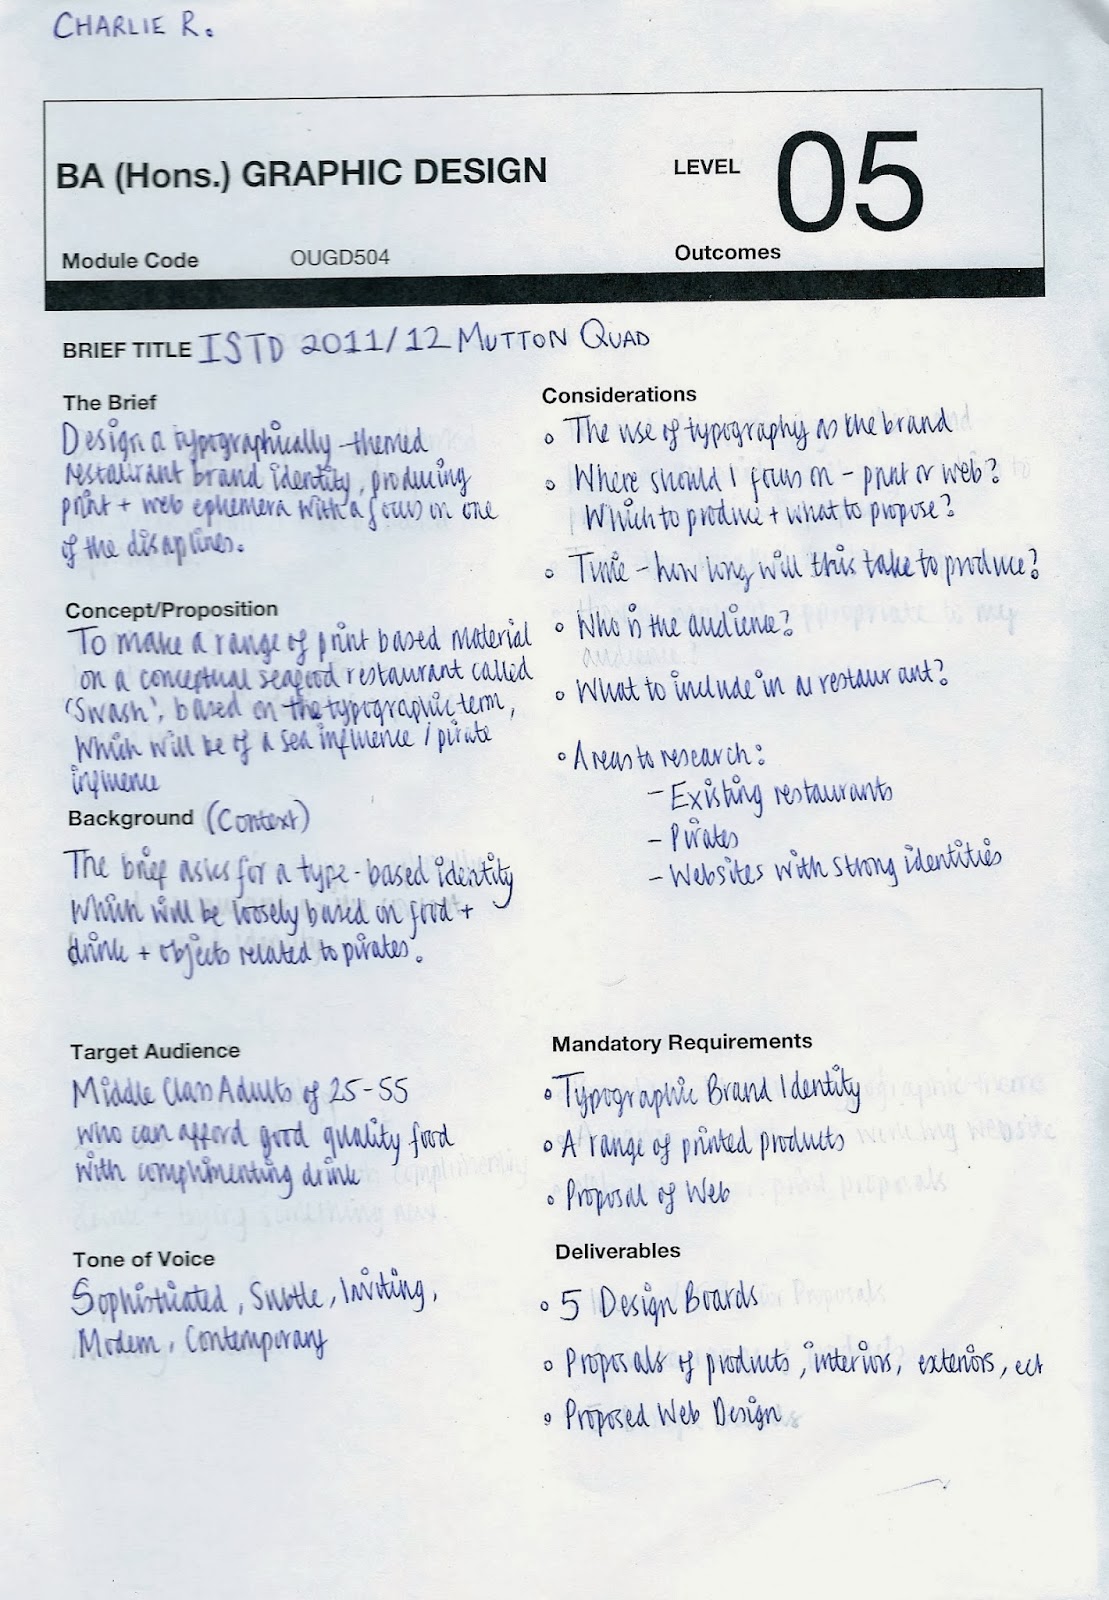 CHARLIE R.
BA (Hons.) GRAPHIC DESIGN
LEVEL 05
Module Code OUGD504
Outcomes
BRIEF TITLE ISTD 2011/12 MUTTON QUAD
The Brief
Design a typographically-themed
restaurant brand identity, producing
print + web ephemera with a focus on one
of the disaplines.
Concept/Proposition
To make a range of print based material
on a conceptual seafood restaurant called
'Swash', based on the typographic term,
which will be of a sea influence / pirate
influence
Background (Context)
The brief asks for a type-based identity
which will be loosely based on food +
drink + objects related to pirates.
Target Audience
Middle Class Adults of 25-55
who can afford good quality food
with complimenting drink
Tone of Voice
Sophisticated, Subtle, Inviting,
Modern, Contemporary
Considerations
The use of typography as the brand
Where should I focus on - print or web?
Which to produce + what to propose?
Time - how long will this take to produce?
Who is the audience?
What to include in a restaurant?
Areas to research:
- Existing restaurants
- Pirates
- Websites with strong identities
Mandatory Requirements
Typographic Brand Identity
A range of printed products
Proposal of Web
Deliverables
5 Design Boards
Proposals of products, interiors, exteriors, ect
Proposed Web Design